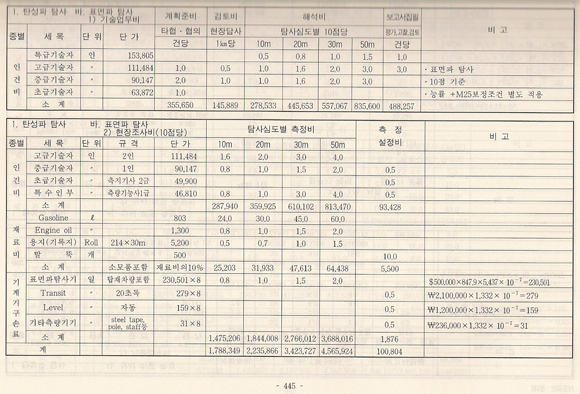 1. 탄성파 탐사 바. 표면파 탐사
1) 기술업무비
계획준비 검토비 해석비 보고서집필
타협·협의 현장탐사 탐사심도별 10점당 평가,고찰,검토
종별 세 목 단 위 단 가 건당 1㎞당 10m 20m 30m 50m 건당 비 고
인건비
특급기술자 인 153,805 0.5 0.8 1.0 1.5 1.0
고급기술자 〃 111,484 1.0 0.5 1.0 1.6 2.0 3.0 3.0 ·표면파 탐사
중급기술자 〃 90,147 2.0 1.0 1.0 1.6 2.0 3.0 ·10점 기준
초급기술자 〃 63,872 1.0 ·능률 +M25보정조건 별도 적용
소 계 355,650 145,889 278,533 445,653 557,067 835,600 488,257
1. 탄성파 탐사 바. 표면파 탐사
2) 현장조사비(10점당)
탐사심도별 측정비 측 정
종별 세 목 단 위 규 격 단 가 10m 20m 30m 50m 설정비 비 고
인건비
고급기술자 인 2인 111,484 1.6 2.0 3.0 4.0
중급기술자 〃 1인 90,147 0.8 1.0 1.5 2.0 0.5
초급기술자 〃 측지기사 2급 49,900 0.5
특수인부 〃 측량기능사1급 46,810 0.8 1.0 3.0 4.0 0.5
소 계 287,940 359,925 610,102 813,470 93,428
재료비
Gasoline ℓ 803 24.0 30.0 45.0 60.0
Engine oil 〃 1,300 0.8 1.0 1.5 2.0
용지(기록지) Roll 214×30m 5,200 0.5 0.7 1.0 1.5
말 뚝 개 500 10.0
소 계 소모품포함 재료비의10% 25,203 31,933 47,613 64,438 5,500
기계기구손료
표면파탐사기 일 탑재차량포함 230,501×8 0.8 1.0 1.5 2.0 $500,000×847.9×5,437×10⁻⁷=230,501
Transit 〃 20초독 279×8 0.5 ₩2,100,000×1,332×10⁻⁷=279
Level 〃 자동 159×8 0.5 ₩1,200,000×1,332×10⁻⁷=159
기타측량기기 〃 steel tape, pole, staff등 31×8 0.5 ₩236,000×1,332×10⁻⁷=31
소 계 1,475,206 1,844,008 2,766,012 3,688,016 1,876
계 1,788,349 2,235,866 3,423,727 4,565,924 100,804
- 445 -